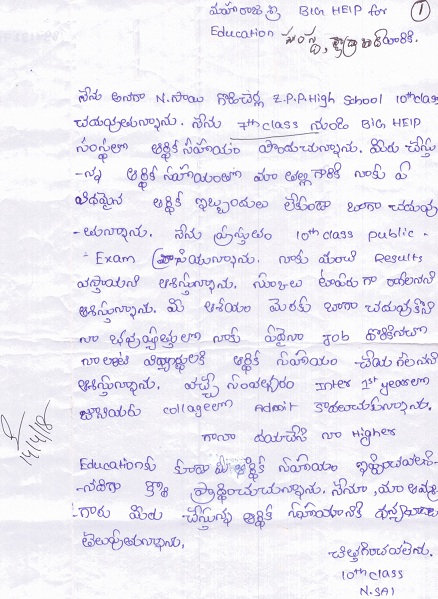 మహారాజశ్రీ BIG HELP for
1
Education సంస్థ, హైదరాబాద్ వారికి.
నేను అనగా N.సాయి గొట్టిచెర్ల Z.P.P.High School 10th class
చదువుతున్నాను. నేను 7th class నుండి BIG HELP
సంస్థలో ఆర్థిక సహాయం పొందుచున్నాను. మీరు చేస్తు
-న్న ఆర్థిక సహాయంతో మా తల్లి గారికి నాకు ఏ
విధమైన ఆర్థిక ఇబ్బందులు లేకుండా బాగా చదువు
-తున్నాను. నేను ప్రస్తుతం 10th class public -
- Exam వ్రాసియున్నాను. నాకు మంచి Results
వస్తాయని ఆశిస్తున్నాను. రాగలనని
ఆశిస్తున్నాను. మీ ఆశయం మేరకు బాగా చదువుకొని
నా భవిష్యత్తులో నాకు ఏదైనా Job దొరికినచో
నాలాంటి విద్యార్థులకి ఆర్థిక సహాయం చేయగలనని
ఆశిస్తున్నాను. వచ్చే సంవత్సరం Inter 1st yearలో
collageలో Admit కాదలుచుకున్నాను.
కానా దయచేసి నా Higher
Educationకు కూడా మీ ఆర్థిక సహాయం
ప్రార్థించుచున్నాను. నేనూ, మా అమ్మ
గారు మీరు చేస్తున్న ఆర్థిక సహాయానికి ధన్యవాదాలు
తెలుపుతున్నాను.
చిత్తగించవలెను.
10th class
N.SAI
14/4/18